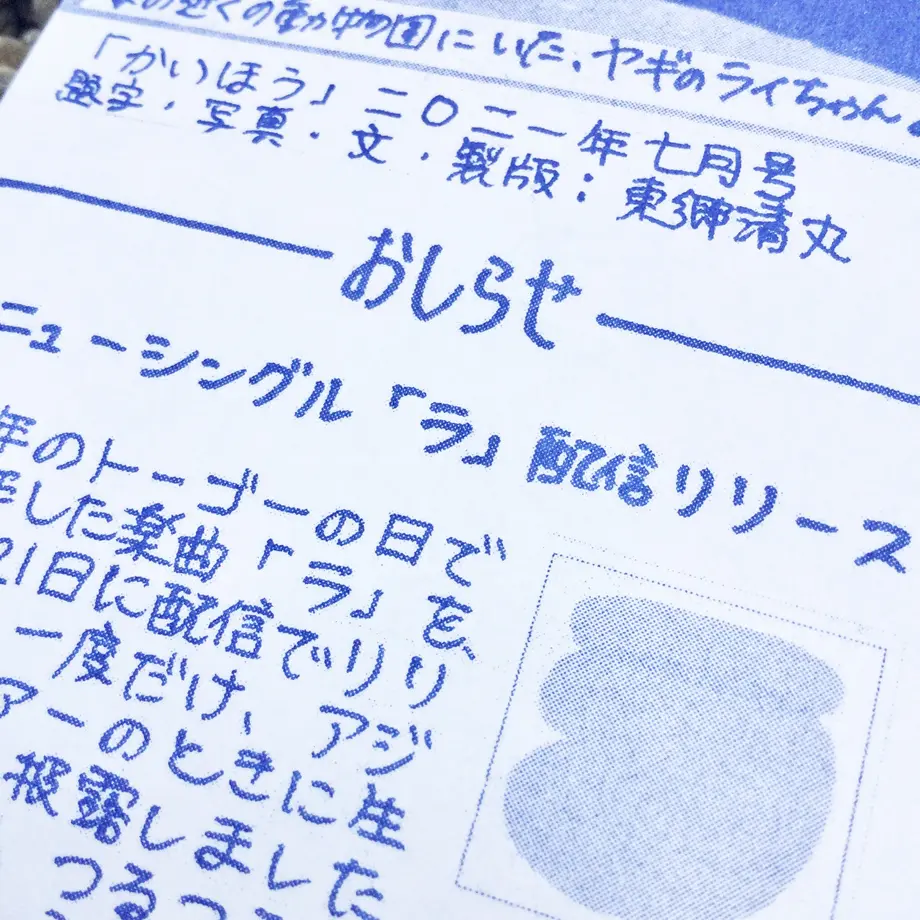 の近くの動物園にいた、ヤギのライちゃん
「かいほう」二〇二一年七月号
題字・写真・文・製版：東郷清丸
おしらせ
ニューシングル「ラ」配信リリース
年のトーゴーの日で
した楽曲「ラ」を、
21日に配信でリリ
一度だけ、アジ
アーのときに生
披露しました
つるっ